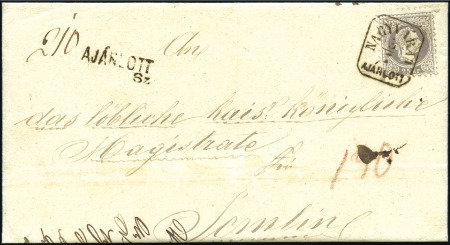 210
AJÁNLOTT
Sz
An
NAGYVÁRAD
AJÁNLOTT
das löbliche kais: königliche
Magistrate
Für
190
Semlin